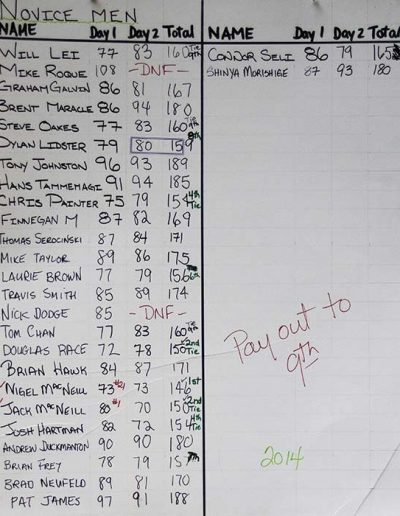 NOVICE MEN
NAME DAY 1 DAY 2 TOTAL
WILL LEI 77 83 160 Tie 9th
MIKE ROQUE 108 -DNF-
GRAHAM GALVIN 86 81 167
BRENT MARACLE 86 94 180
STEVE OAKES 77 83 160 Tie 9th
DYLAN LIDSTER 79 80 159 8th
TONY JOHNSTON 96 93 189
HANS TAMMEMAGI 91 94 185
CHRIS PAINTER 75 79 154 4th Tie
FINNEGAN M 87 82 169
THOMAS SEROCINSKI 87 84 171
MIKE TAYLOR 89 86 175
LAURIE BROWN 77 79 156 6th
TRAVIS SMITH 85 89 174
NICK DODGE 85 -DNF-
TOM CHAN 77 83 160 Tie 9th
DOUGLAS RACE 72 78 150 2nd Tie
BRIAN HAWK 84 87 171
NIGEL MACNEILL 73 #2 73 146 1st
JACK MACNEILL 80 #1 70 150 2nd Tie
JOSH HARTMAN 82 72 154 4th Tie
ANDREW DUCKMANTON 90 90 180
BRIAN FREY 78 79 157 7th
BRAD NEUFELD 89 81 170
PAT JAMES 97 91 188
NAME DAY 1 DAY 2 TOTAL
CONNOR SELI 86 79 165
SHINYA MORISHIGE 87 93 180
Pay out to
9th
2014